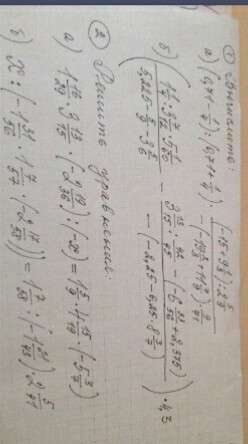 ① Вычислить:
а) (0,71 - 1/4) : (0,71 + 1/4) · ((-15 + 9 1/3) : 2 5/9) / (-(-19 2/3 + 11 7/9) · 9/71)
б) ((1 1/4 · 3 7/12 · 5 1/60) / (5,225 - 5/9 - 3 5/6) - (3 13/15 : 42/45 - (-6 33/56 + 2,375)) / (-(-2,25 - 6,25 · 8 3/7))) · 4,3
② Решить уравнения:
а) 1 16/29 · 3 13/15 · (-2 19/36) : (-x) = 1 5/9 · 4 15/19 · (-5 3/7)
б) x : (-1 31/56 · 1 7/57 · (-2 17/58)) = 1 7/58 : (-1 21/43) · 2 5/41